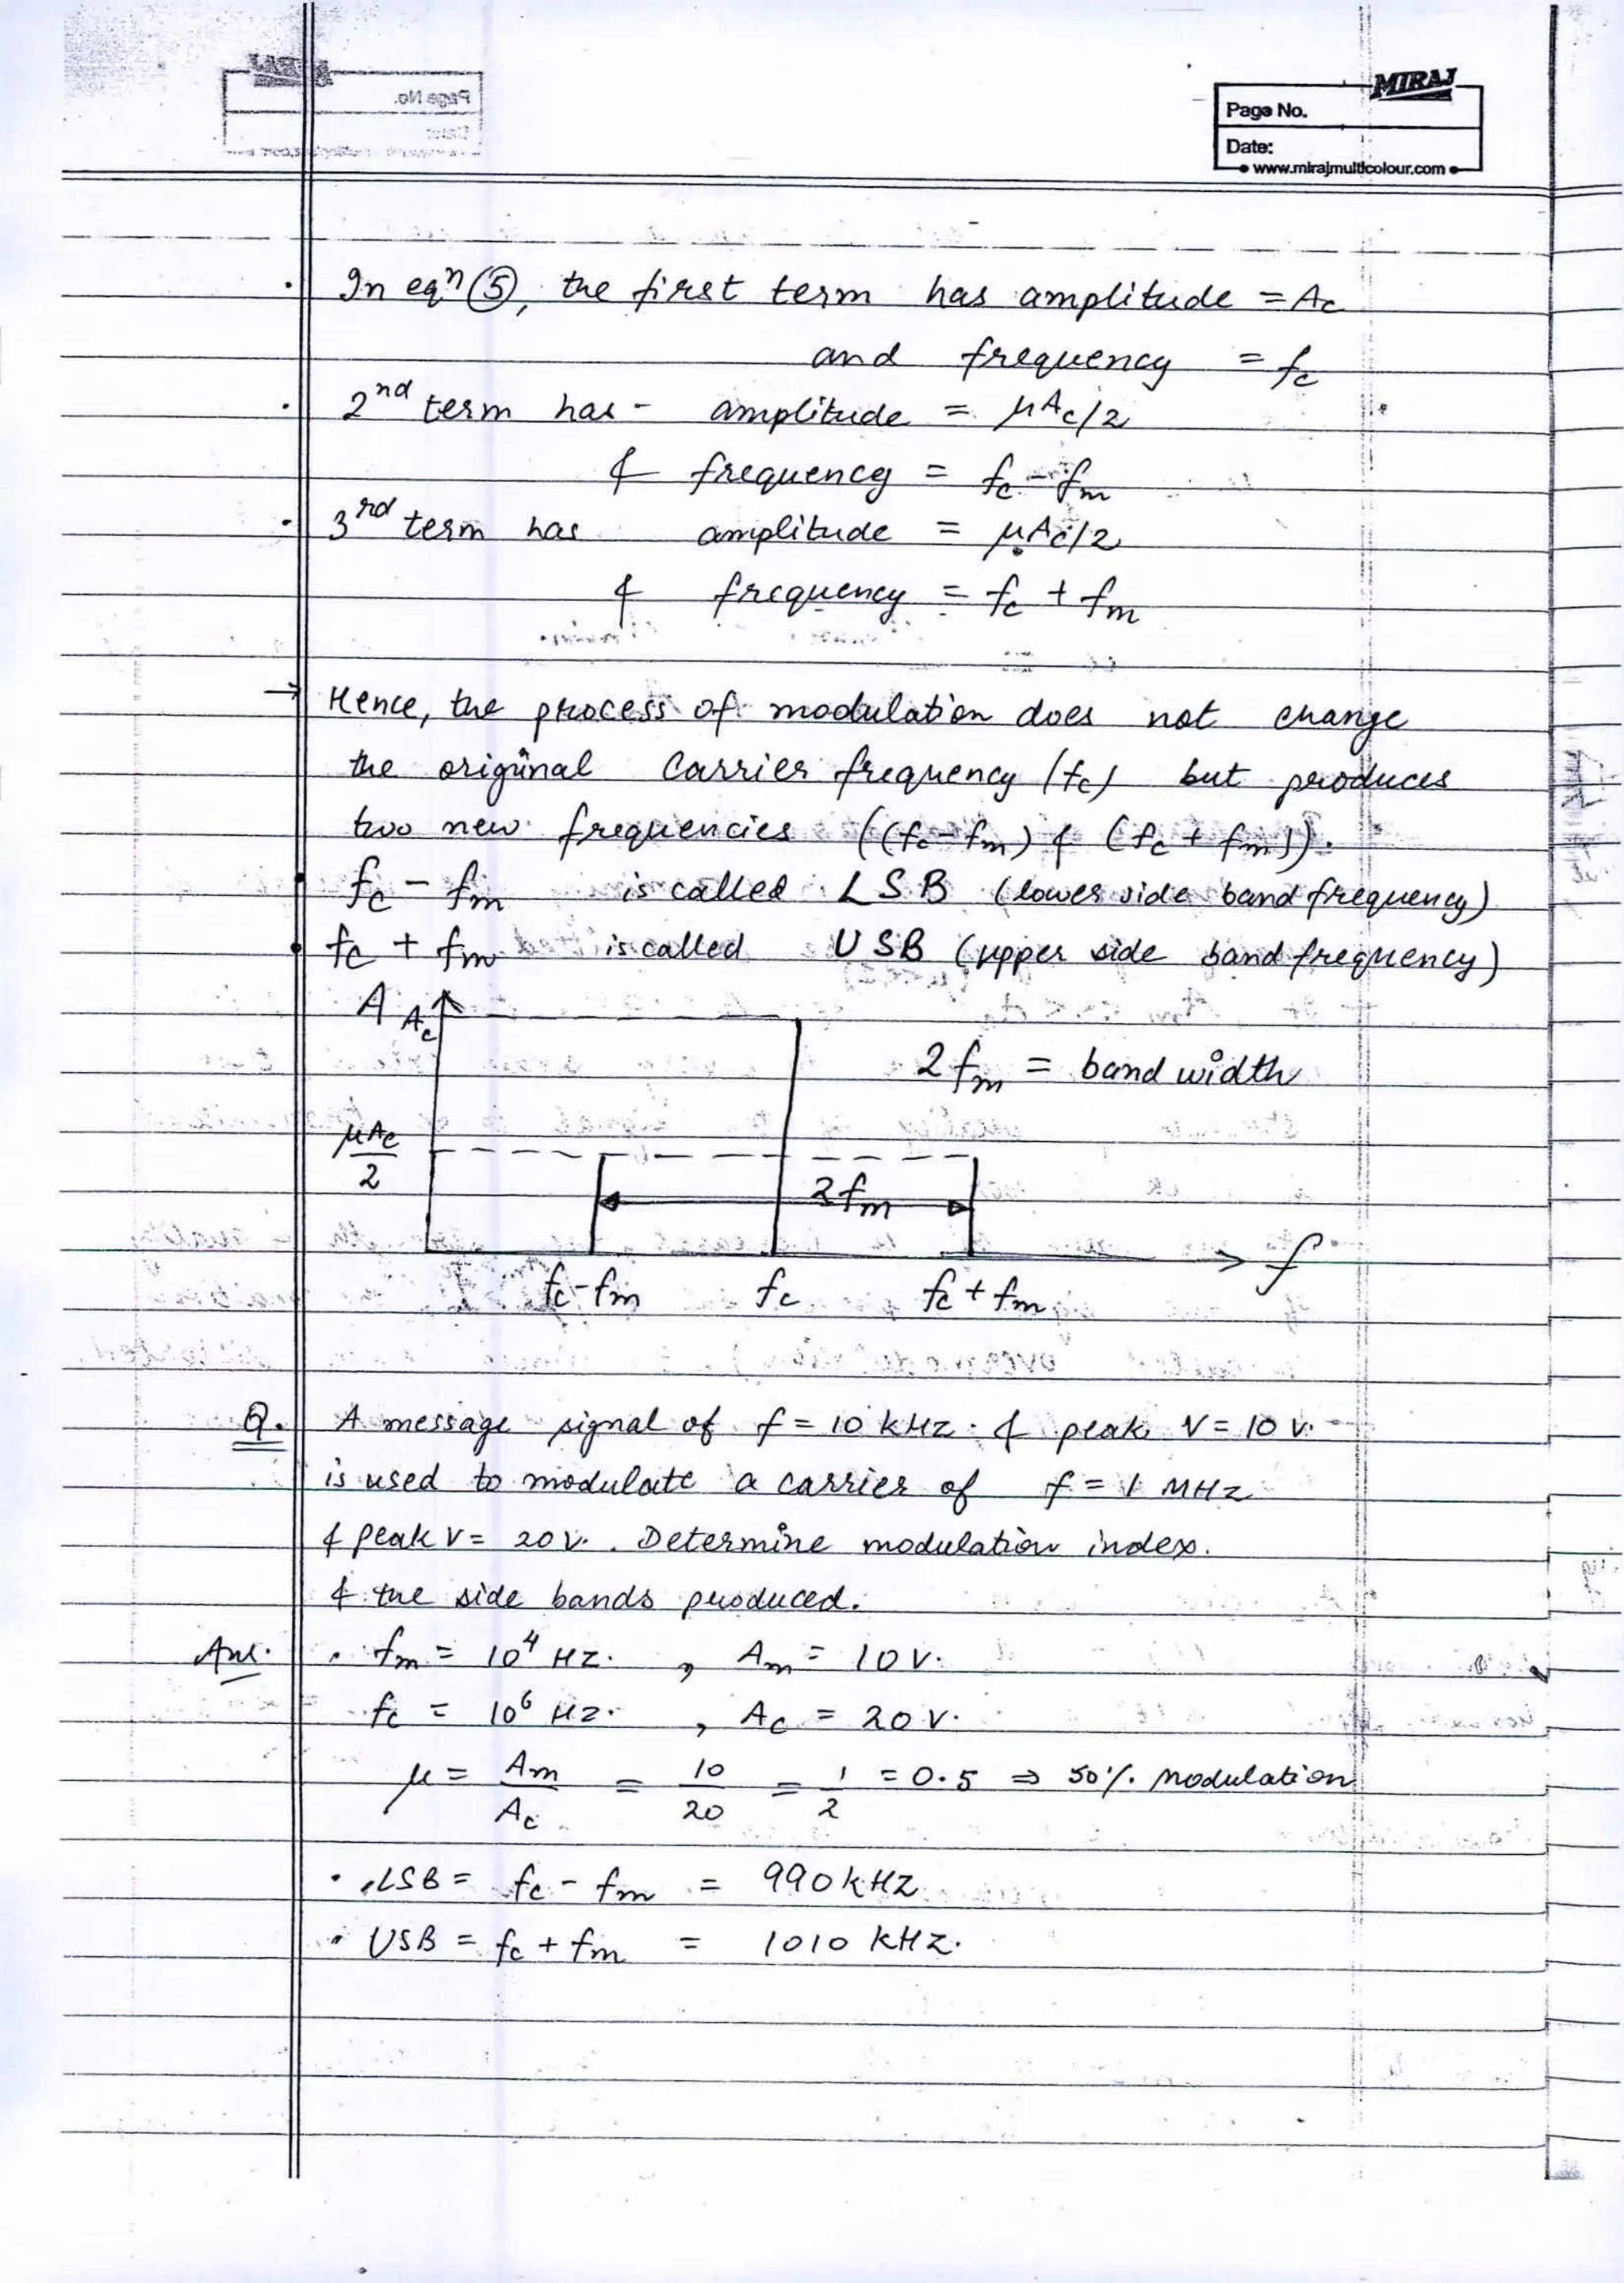 MIRAJ
Page No.
Date:
www.mirajmulticolour.com
In eqⁿ (5), the first term has amplitude = Ac
and frequency = fc
2nd term has - amplitude = μAc/2
& frequency = fc - fm
3rd term has amplitude = μAc/2
& frequency = fc + fm
→ Hence, the process of modulation does not change
the original carrier frequency (fc) but produces
two new frequencies ((fc - fm) & (fc + fm)).
• fc - fm is called LSB (lower side band frequency)
• fc + fm is called USB (upper side band frequency)
A Ac
2fm = band width
μAc/2
2fm
f
fc-fm fc fc + fm
Q. A message signal of f = 10 kHz & peak V = 10 V.
is used to modulate a carrier of f = 1 MHz
& peak V = 20 V. Determine modulation index.
& the side bands produced.
Ans. • fm = 10⁴ Hz. , Am = 10 V.
fc = 10⁶ Hz. , Ac = 20 V.
μ = Am/Ac = 10/20 = 1/2 = 0.5 ⇒ 50% Modulation
• LSB = fc - fm = 990 kHz
• USB = fc + fm = 1010 kHz.